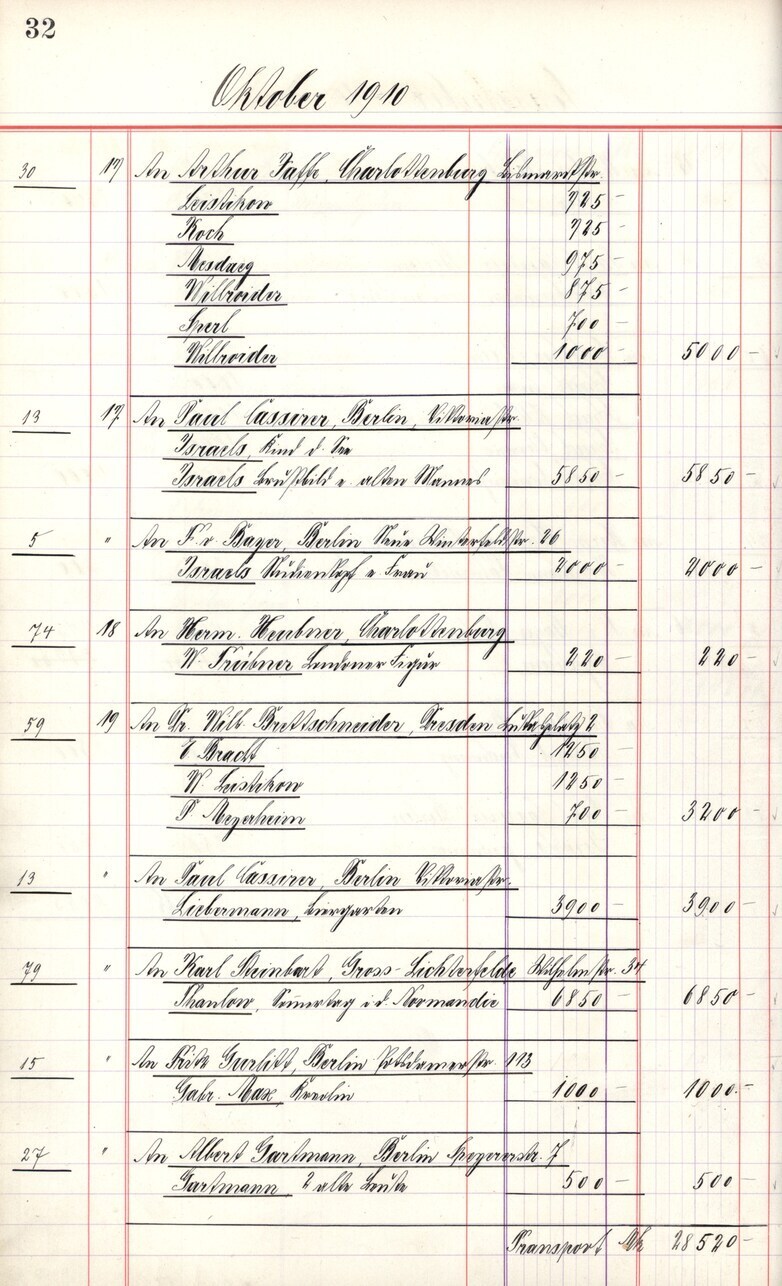 32
Oktober 1910
30 17 An Arthur Jaffe, Charlottenburg Bismarckstr.
Leistikow 725 -
Koch 725 -
Mesdaeg 975 -
Willroider 875 -
Sperl 700 -
Willroider 1000 - 5000 -
13 17 An Paul Cassirer, Berlin, Viktoriastr.
Israels, Kind d. See
Israels Brustbild e. alten Mannes 5850 - 5850 -
5 " An F. v. Bayer, Berlin Neue Winterfeldstr. 26
Israels Studienkopf e. Frau 2000 - 2000 -
74 18 An Herm. Heubner, Charlottenburg
W. Trübner Londoner Figur 220 - 220 -
59 19 An Dr. Willi Brettschneider, Dresden 2
E. Bracht 1250 -
W. Leistikow 1250 -
P. Meyerheim 700 - 3200 -
13 " An Paul Cassirer, Berlin Viktoriastr.
Liebermann, Biergarten 3900 - 3900 -
79 " An Karl Steinbart, Gross-Lichterfelde Wilhelmstr. 34
Thaulow, Som̅ertag i. d. Normandie 6850 - 6850 -
15 " An Fritz Gurlitt, Berlin Potsdamerstr. 113
Gabr. Max, 1000 - 1000.-
27 " An Albert Gartmann, Berlin Speyererstr. 7
Gartmann 2 alte Leute 500 - 500 -
Transport Mk 28520 -